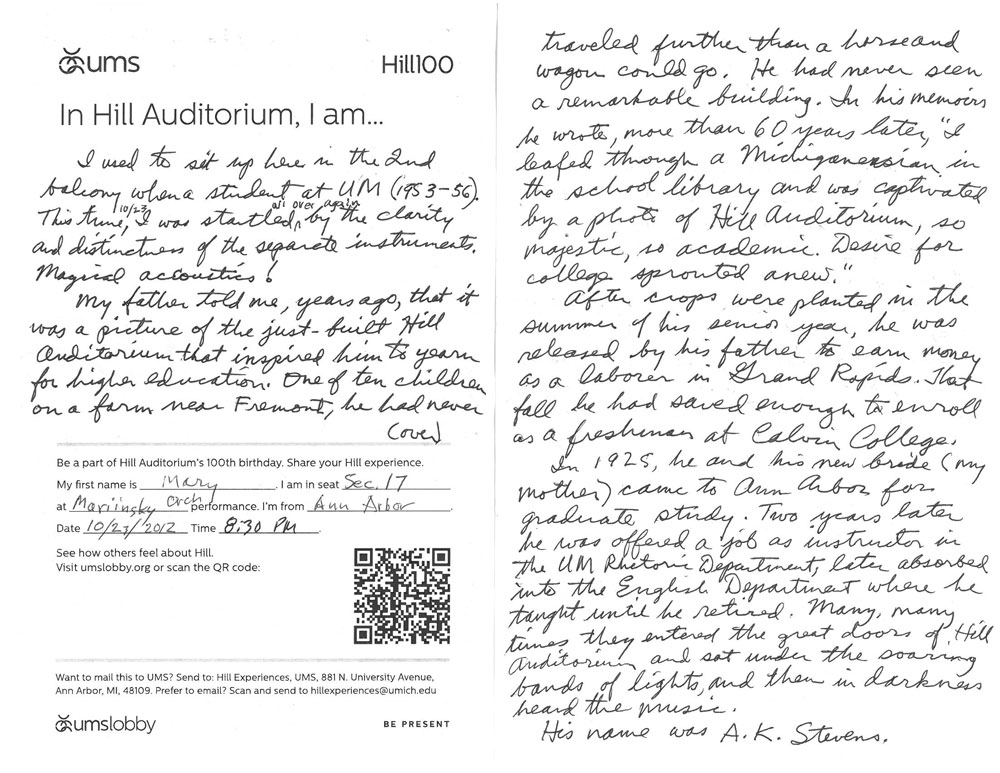 ums
Hill100
In Hill Auditorium, I am...
I used to sit up here in the 2nd
balcony when a student at UM (1953-56).
This time, 10/27 I was startled, all over again by the clarity
and distinctness of the separate instruments.
Magical acoustics!
My father told me, years ago, that it
was a picture of the just-built Hill
Auditorium that inspired him to yearn
for higher education. One of ten children
on a farm near Fremont, he had never
(over)
Be a part of Hill Auditorium's 100th birthday. Share your Hill experience.
My first name is Mary. I am in seat Sec. 17
at Mariinsky Orch performance. I'm from Ann Arbor.
Date 10/27/2012 Time 8:30 PM.
See how others feel about Hill.
Visit umslobby.org or scan the QR code:
Want to mail this to UMS? Send to: Hill Experiences, UMS, 881 N. University Avenue,
Ann Arbor, MI, 48109. Prefer to email? Scan and send to hillexperiences@umich.edu
umslobby
BE PRESENT
traveled further than a horse and
wagon could go. He had never seen
a remarkable building. In his memoirs
he wrote, more than 60 years later, "I
leafed through a Michiganensian in
the school library and was captivated
by a photo of Hill Auditorium, so
majestic, so academic. Desire for
college sprouted anew."
After crops were planted in the
summer of his senior year, he was
released by his father to earn money
as a laborer in Grand Rapids. That
fall he had saved enough to enroll
as a freshman at Calvin College.
In 1925, he and his new bride (my
mother) came to Ann Arbor for
graduate study. Two years later
he was offered a job as instructor in
the UM Rhetoric Department, later absorbed
into the English Department where he
taught until he retired. Many, many
times they entered the great doors of Hill
Auditorium and sat under the soaring
bands of lights, and then in darkness
heard the music.
His name was A.K. Stevens.